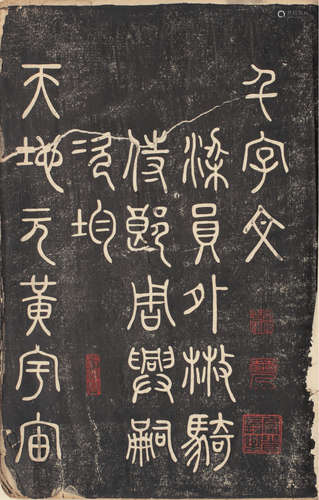 千字文
梁員外散騎
侍郎周興嗣
次韵
天地元黃宇宙